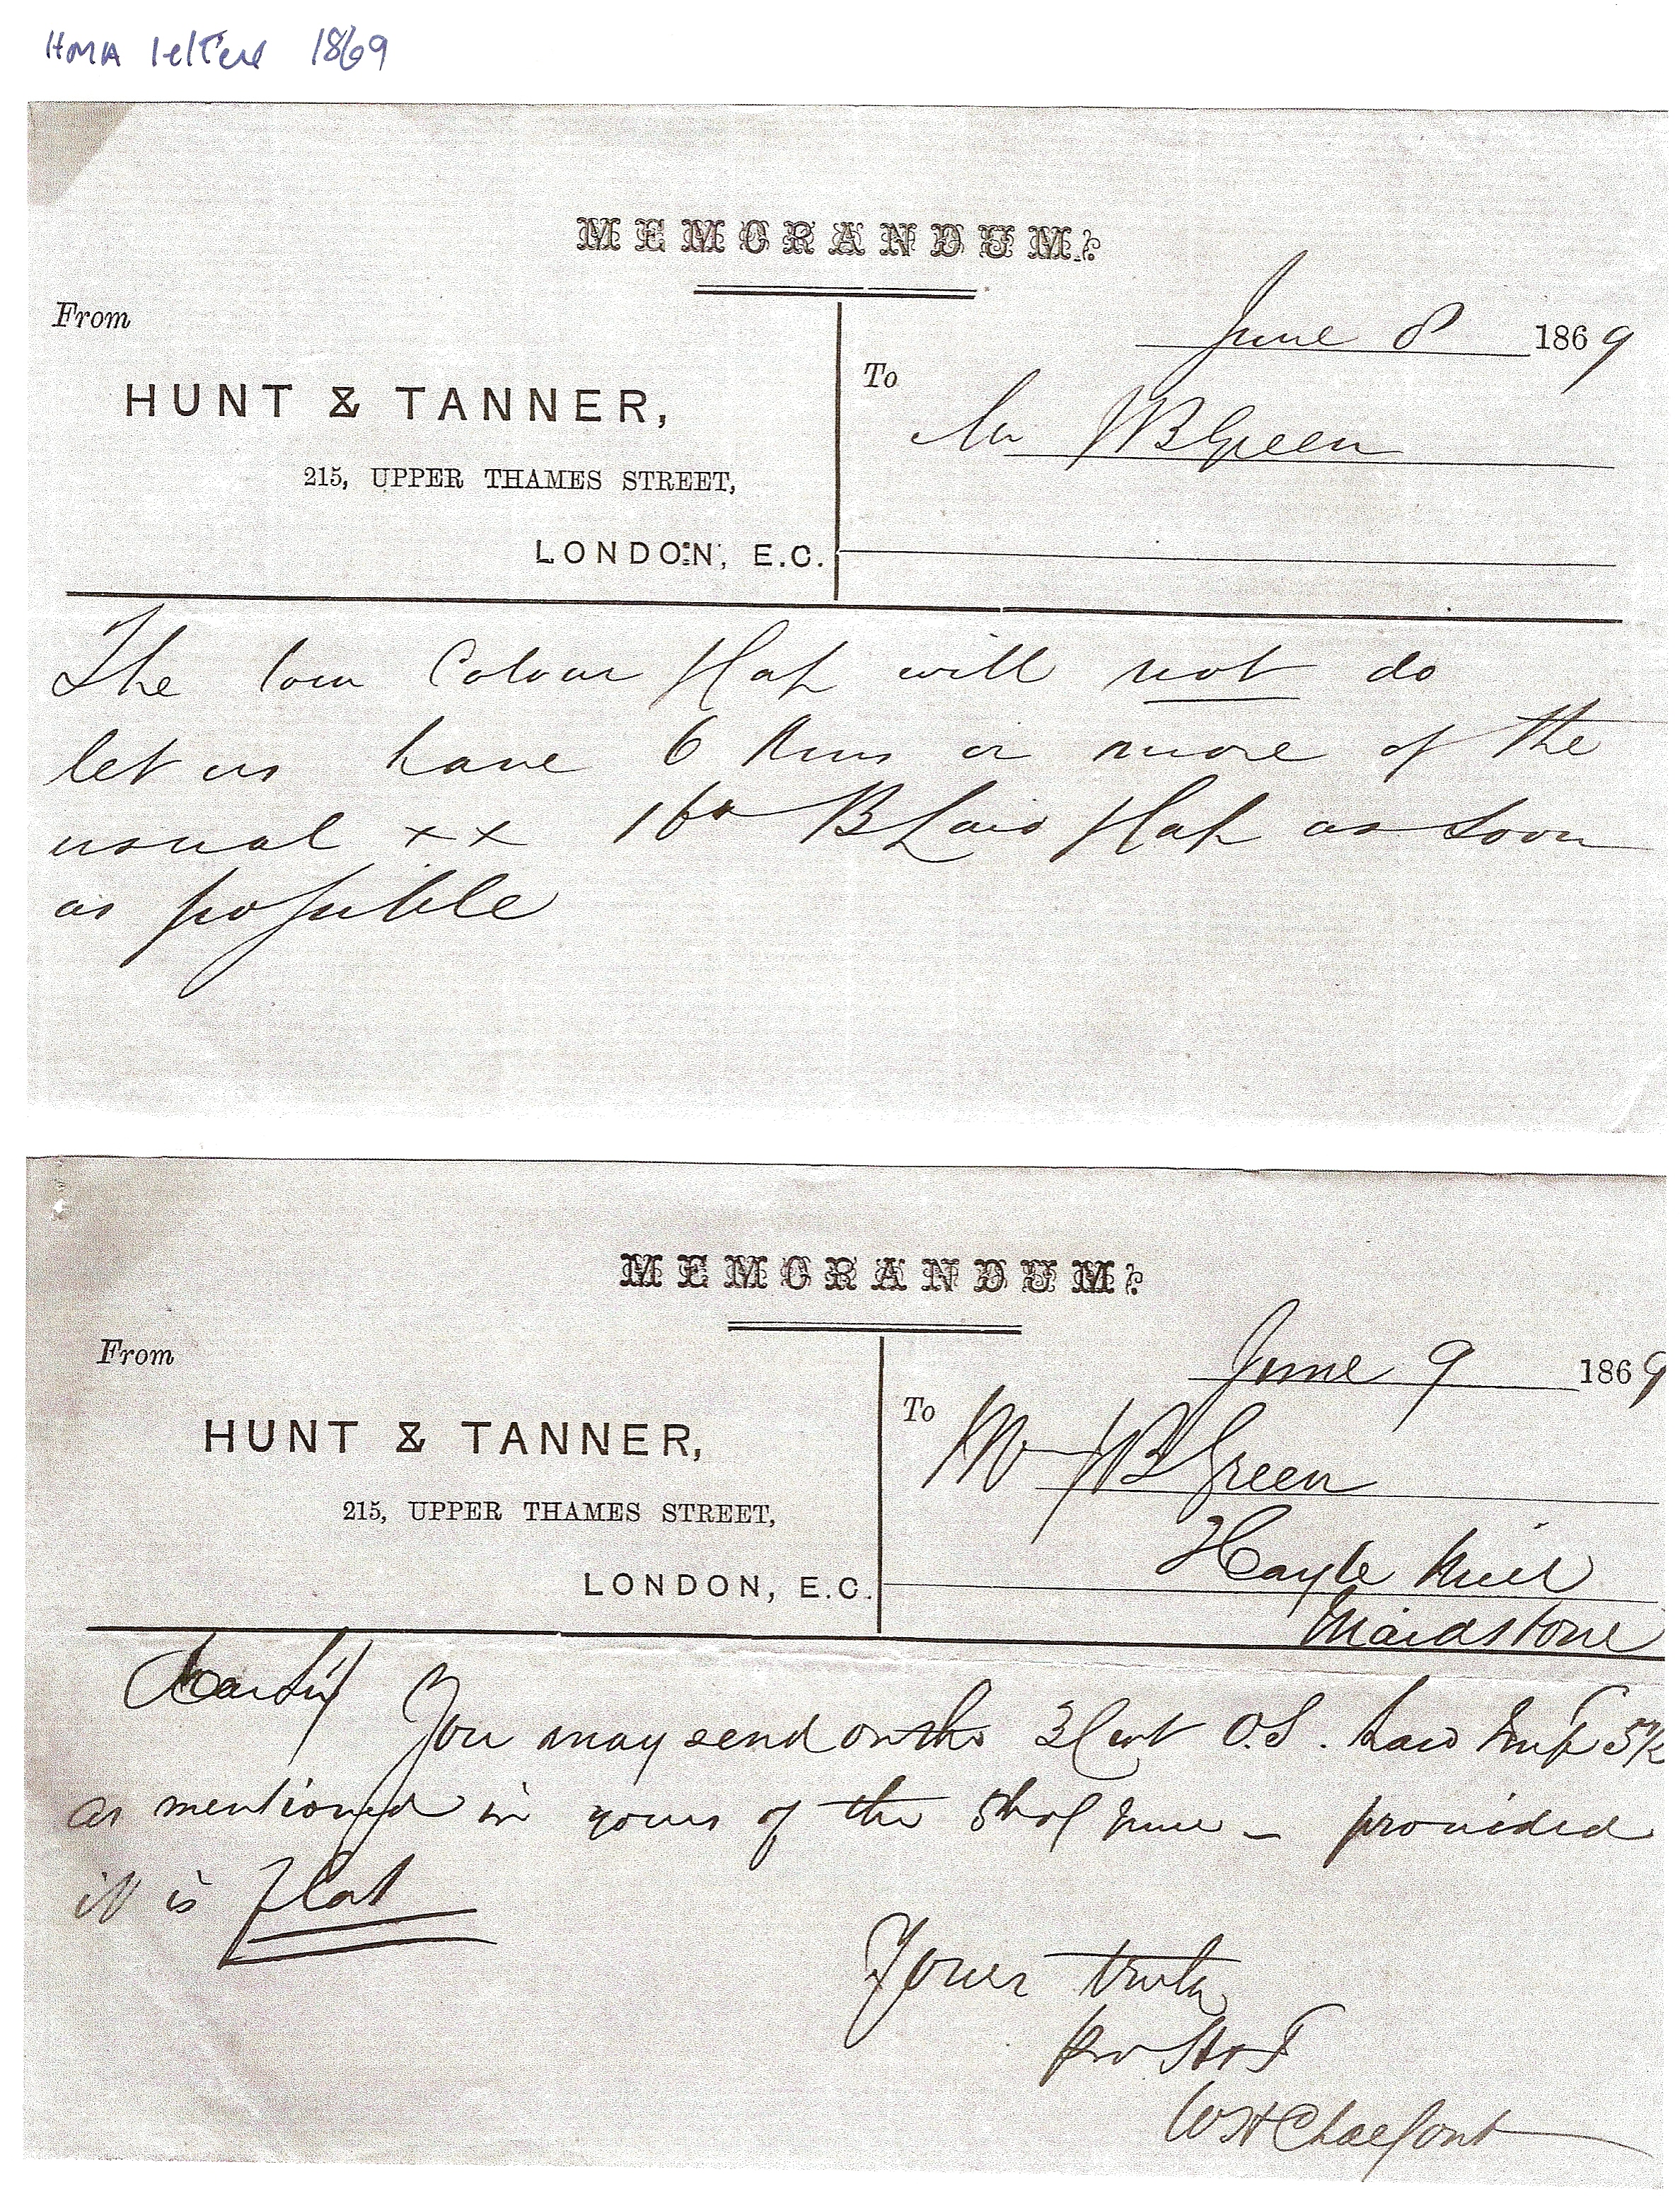 HMA letters 1869
MEMORANDUM:
From
June 8 1869
HUNT & TANNER,
To
Mr JB Green
215, UPPER THAMES STREET,
LONDON, E.C.
The low Colour Hah will not do
let us have 6 Rms or more of the
usual xx 16 B Laid Hah as soon
as possible
MEMORANDUM:
From
June 9 1869
HUNT & TANNER,
To
Mr JB Green
215, UPPER THAMES STREET,
Hayle Mill
LONDON, E.C.
Maidstone
Dear Sir
You may send on the 3 Cwt O.S. Laid
as mentioned in yours of the 5th of June - provided
it is flat
Yours truly
pro H & T
WH Chalfont